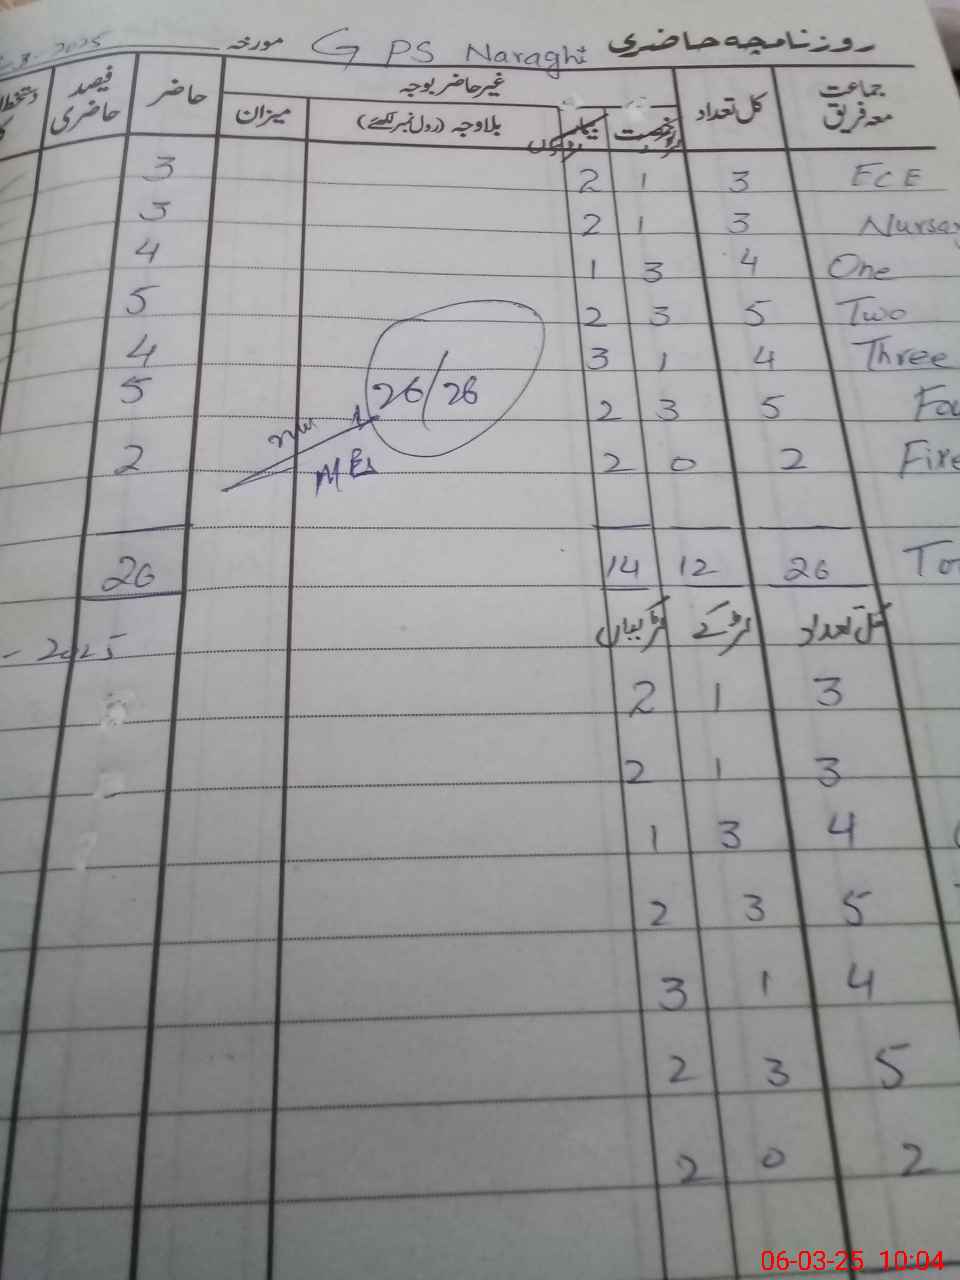 روزنامچہ حاضری GPS Naraghi مورخہ 2025
جماعت معہ فریق کل تعداد غیر حاضر بوجہ حاضر فیصد حاضری
رخصت بیمار بلاوجہ (رول نمبر لکھئے) میزان
ECE 3 1 2 3
3 1 2 3
One 4 3 1 4
Two 5 3 2 5
Three 4 1 3 4
5 3 2 5
26/26
2 0 2 2
26 12 14 26
کل تعداد لڑکے لڑکیاں
2025
3 1 2
3 1 2
4 3 1
5 3 2
4 1 3
5 3 2
2 0 2
06-03-25 10:04